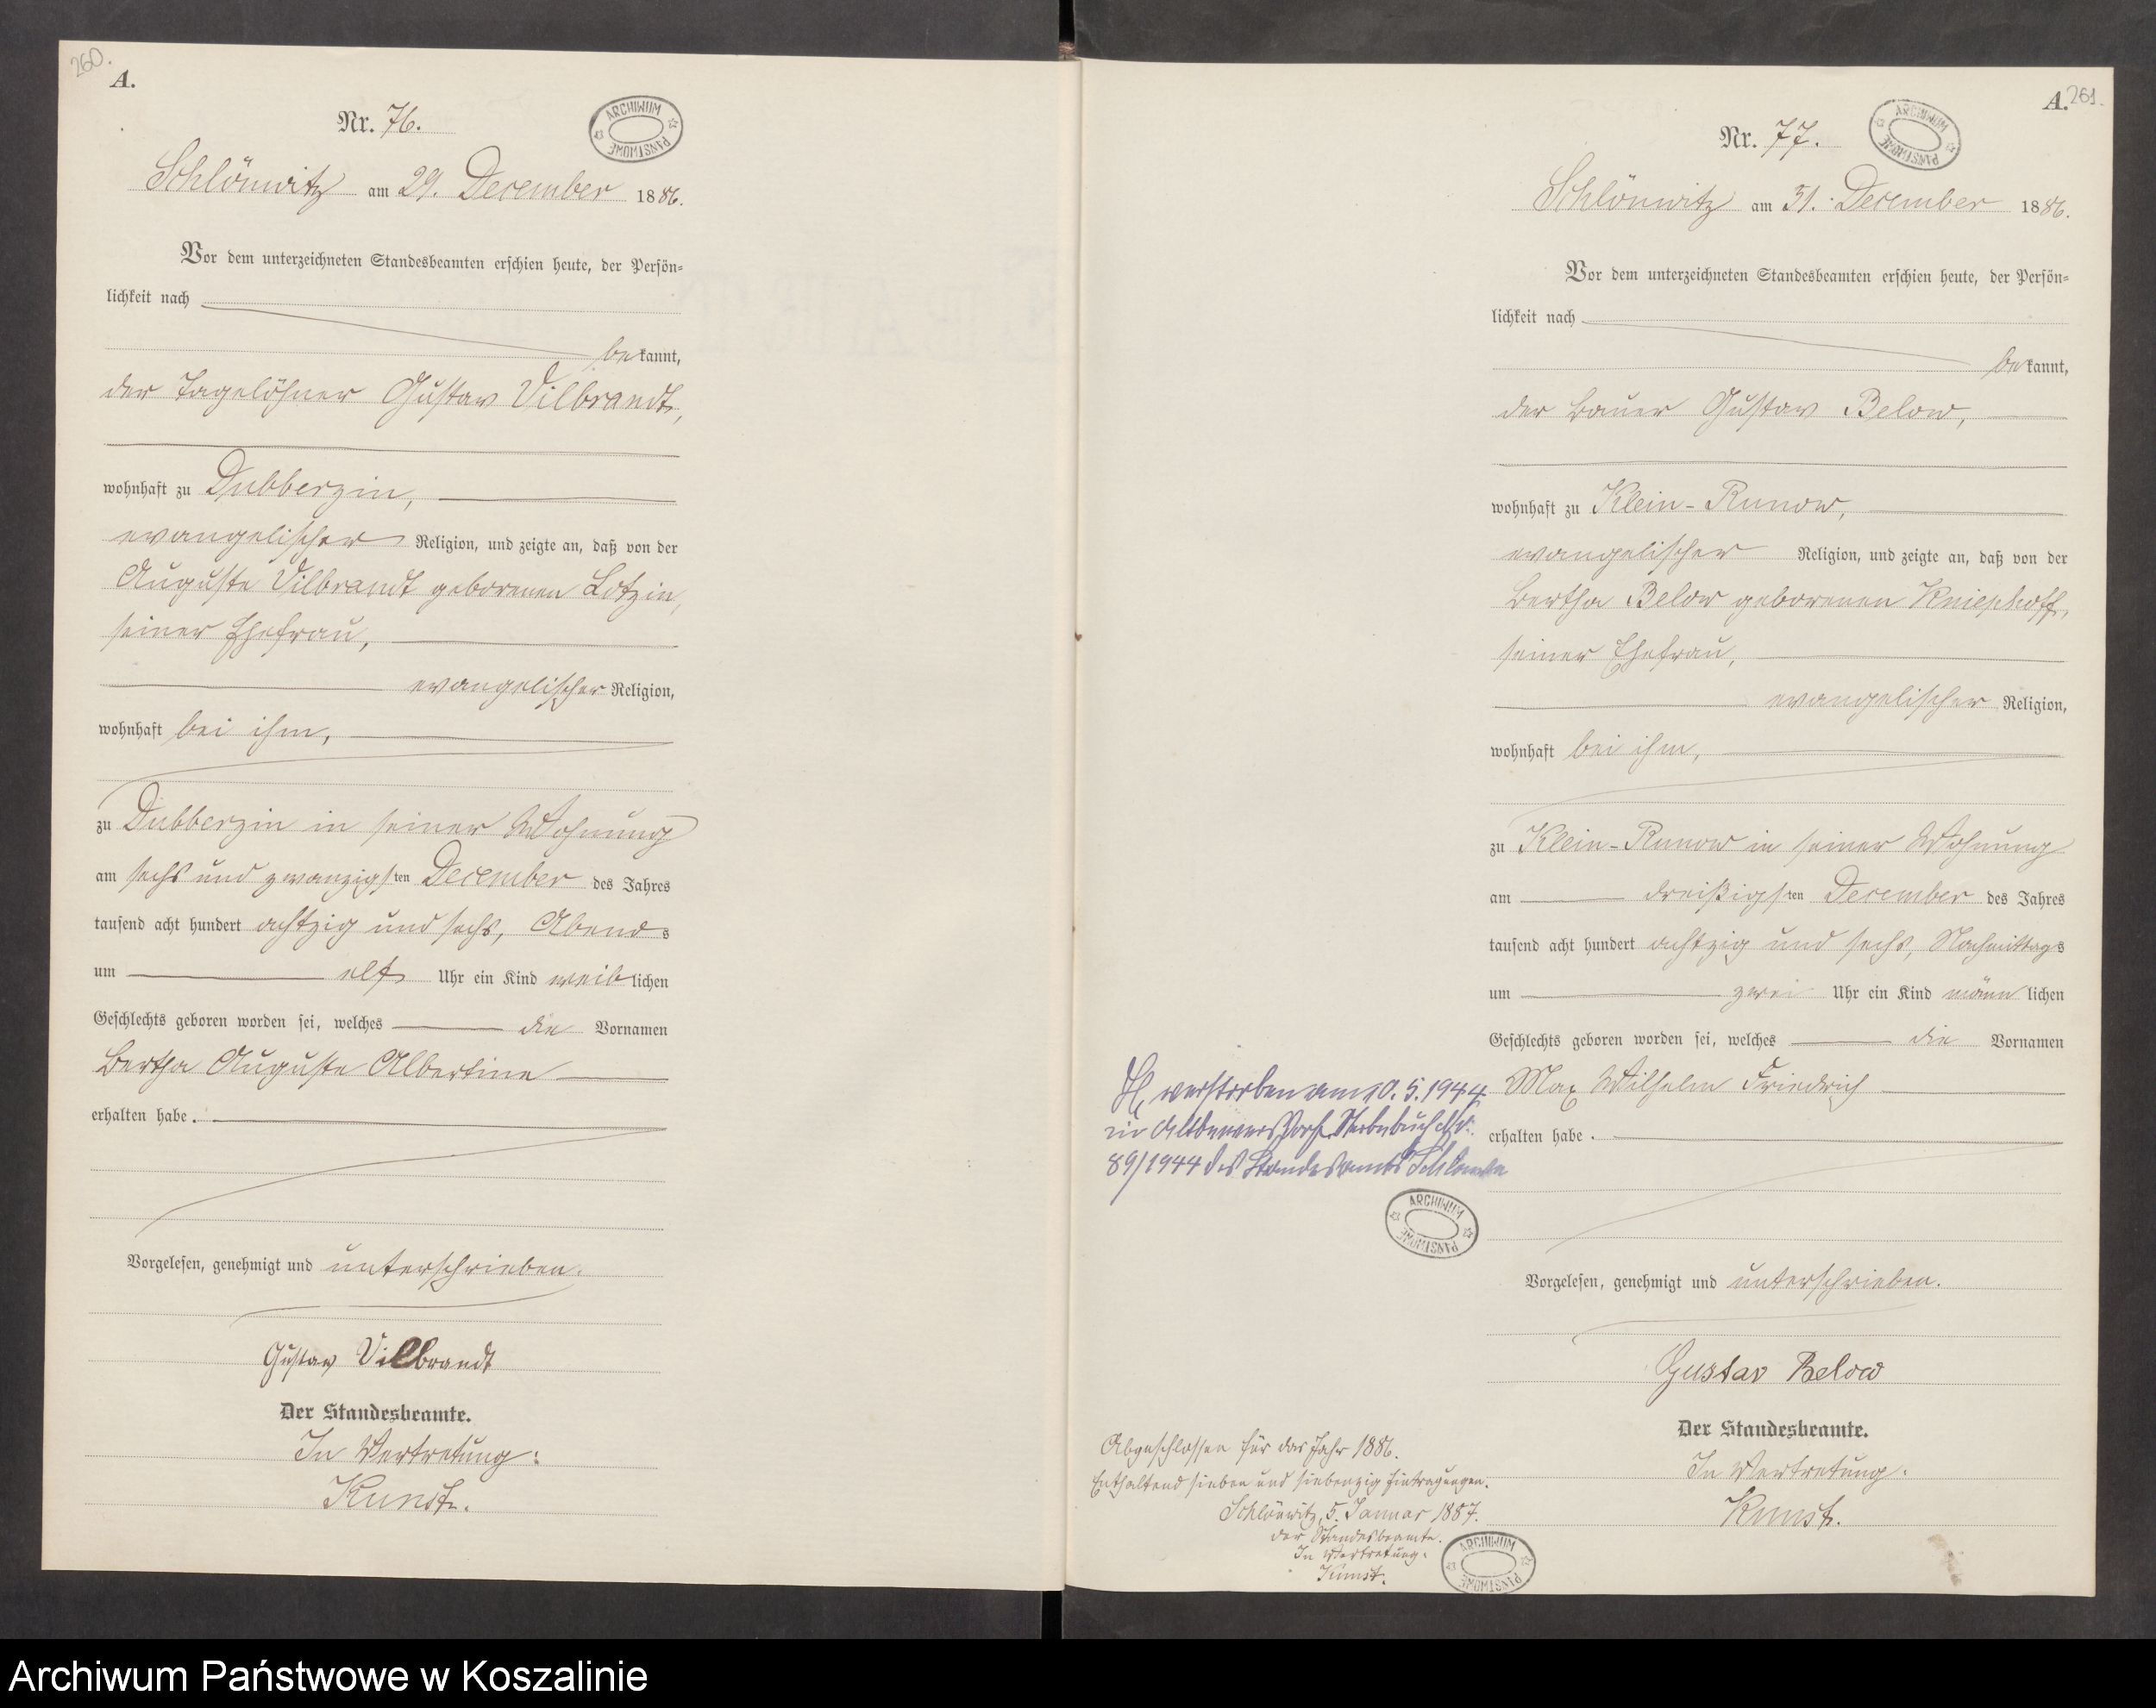 260.
A.
Nr. 76.
ARCHIWUM PAŃSTWOWE
Schlönwitz am 29. December 1886.
Vor dem unterzeichneten Standesbeamten erschien heute, der Persön-
lichkeit nach
bekannt,
der Tagelöhner Gustav Vilbrandt,
wohnhaft zu Dubberzin,
evangelischer Religion, und zeigte an, daß von der
Auguste Vilbrandt geborenen Lotzin,
seiner Ehefrau,
evangelischer Religion,
wohnhaft bei ihm,
zu Dubberzin in seiner Wohnung
am sechs und zwanzigsten December des Jahres
tausend acht hundert achtzig und sechs, Abends
um elf Uhr ein Kind weiblichen
Geschlechts geboren worden sei, welches die Vornamen
Bertha Auguste Albertine
erhalten habe.
Vorgelesen, genehmigt und unterschrieben.
Gustav Vilbrandt
Der Standesbeamte.
In Vertretung:
Kunst.
A. 261.
Nr. 77.
ARCHIWUM PAŃSTWOWE
Schlönwitz am 31. December 1886.
Vor dem unterzeichneten Standesbeamten erschien heute, der Persön-
lichkeit nach
bekannt,
der Bauer Gustav Below,
wohnhaft zu Klein-Runow,
evangelischer Religion, und zeigte an, daß von der
Bertha Below geborenen Kniephoff,
seiner Ehefrau,
evangelischer Religion,
wohnhaft bei ihm,
zu Klein-Runow in seiner Wohnung
am dreißigsten December des Jahres
tausend acht hundert achtzig und sechs, Nachmittags
um zwei Uhr ein Kind männlichen
Geschlechts geboren worden sei, welches die Vornamen
Max Wilhelm Friedrich
erhalten habe.
Vorgelesen, genehmigt und unterschrieben.
Gustav Below
Der Standesbeamte.
In Vertretung:
Kunst.
verstorben am 10. 5. 1944
in Sterbebuch Nr.
89/1944 des Standesamts
ARCHIWUM PAŃSTWOWE
Abgeschlossen für das Jahr 1886.
Enthaltend sieben und siebenzig Eintragungen.
Schlönwitz, 5. Januar 1887.
Der Standesbeamte.
In Vertretung:
Kunst.
ARCHIWUM PAŃSTWOWE
Archiwum Państwowe w Koszalinie